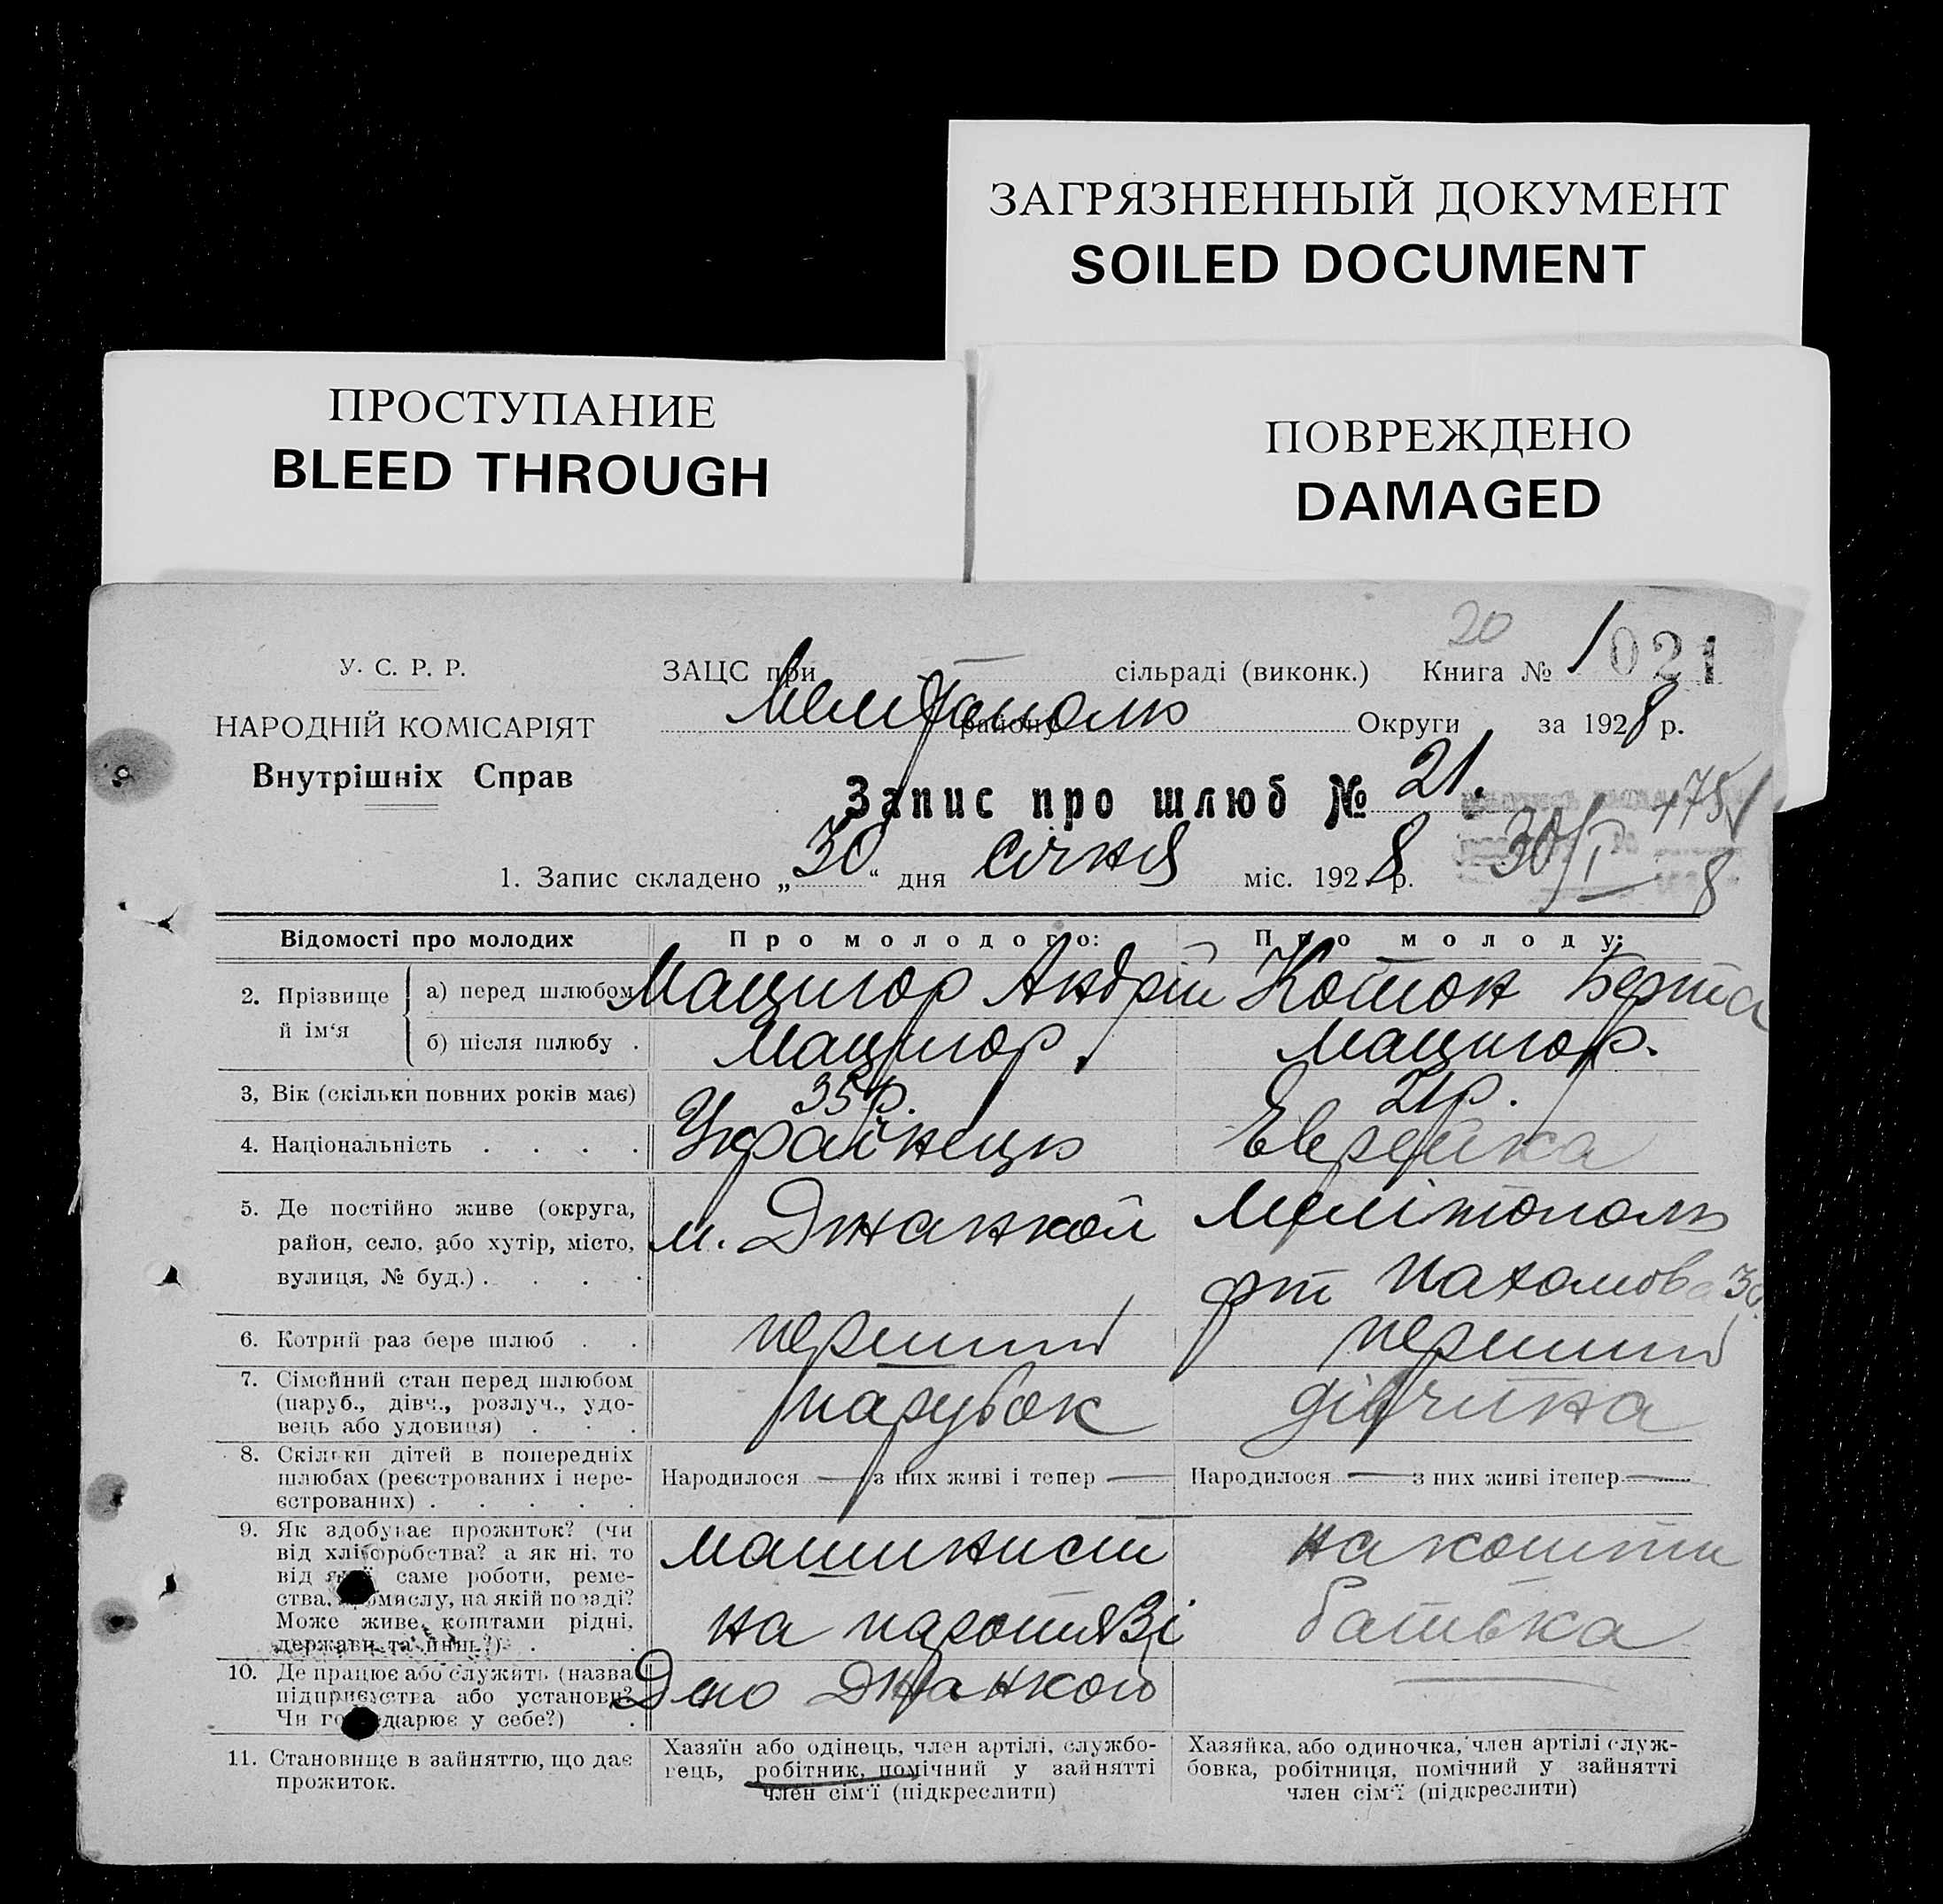 ЗАГРЯЗНЕННЫЙ ДОКУМЕНТ
SOILED DOCUMENT
ПРОСТУПАНИЕ
BLEED THROUGH
ПОВРЕЖДЕНО
DAMAGED
20
У. С. Р. Р.
НАРОДНІЙ КОМІСАРІЯТ
Внутрішніх Справ
ЗАЦС при сільраді (виконк.) Книга № 1 021
Мелітополь району Округи за 1928 р.
Запис про шлюб № 21.
1. Запис складено „30“ дня січня міс. 1928 р. 30/I 8
Відомості про молодих Про молодого: Про молоду:
2. Прізвище й ім‘я а) перед шлюбом Мацигор Андрій Котон Берта
б) після шлюбу . Мацигор. Мацигор.
3, Вік (скільки повних років має) 35 р. 21 р.
4. Національність . . . . Українець Еврейка
5. Де постійно живе (округа, м. Джанкой Мелітополь
район, село, або хутір, місто,
вулиця, № буд.) . . . . Пахомова
6. Котрий раз бере шлюб . . перший перший
7. Сімейний стан перед шлюбом
(паруб., дівч., розлуч., удо- парубок дівчина
вець або удовиця) . . .
8. Скільки дітей в попередніх
шлюбах (реєстрованих і нере- Народилося — з них живі і тепер — Народилося — з них живі ітепер —
єстрованих) . . . . .
9. Як здобуває прожиток? (чи машинист на кошти
від хліборобства? а як ні, то
від якої саме роботи, реме-
ства, промислу, на якій посаді?
Може живе коштами рідні, на паротязі батька
держави та инш.?) . .
10. Де працює або служить (назва Депо Джанкой
підприємства або установи?
Чи господарює у себе?) .
11. Становище в зайняттю, що дає
прожиток.
Хазяїн або одінець, член артілі, службо-
вець, робітник, помічний у зайнятті
член сім‘ї (підкреслити)
Хазяйка, або одиночка, член артілі служ-
бовка, робітниця, помічний у зайнятті
член сім‘ї (підкреслити)